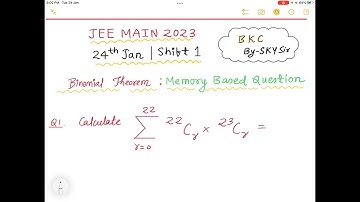 2:00 PM Tue 24 Jan
JEE MAIN 2023
24th Jan | Shift 1
BKC
By-SKY Sir
Binomial Theorem : Memory Based Question
Q1. Calculate ∑_{r=0}^{22} ²²Cᵣ × ²³Cᵣ =